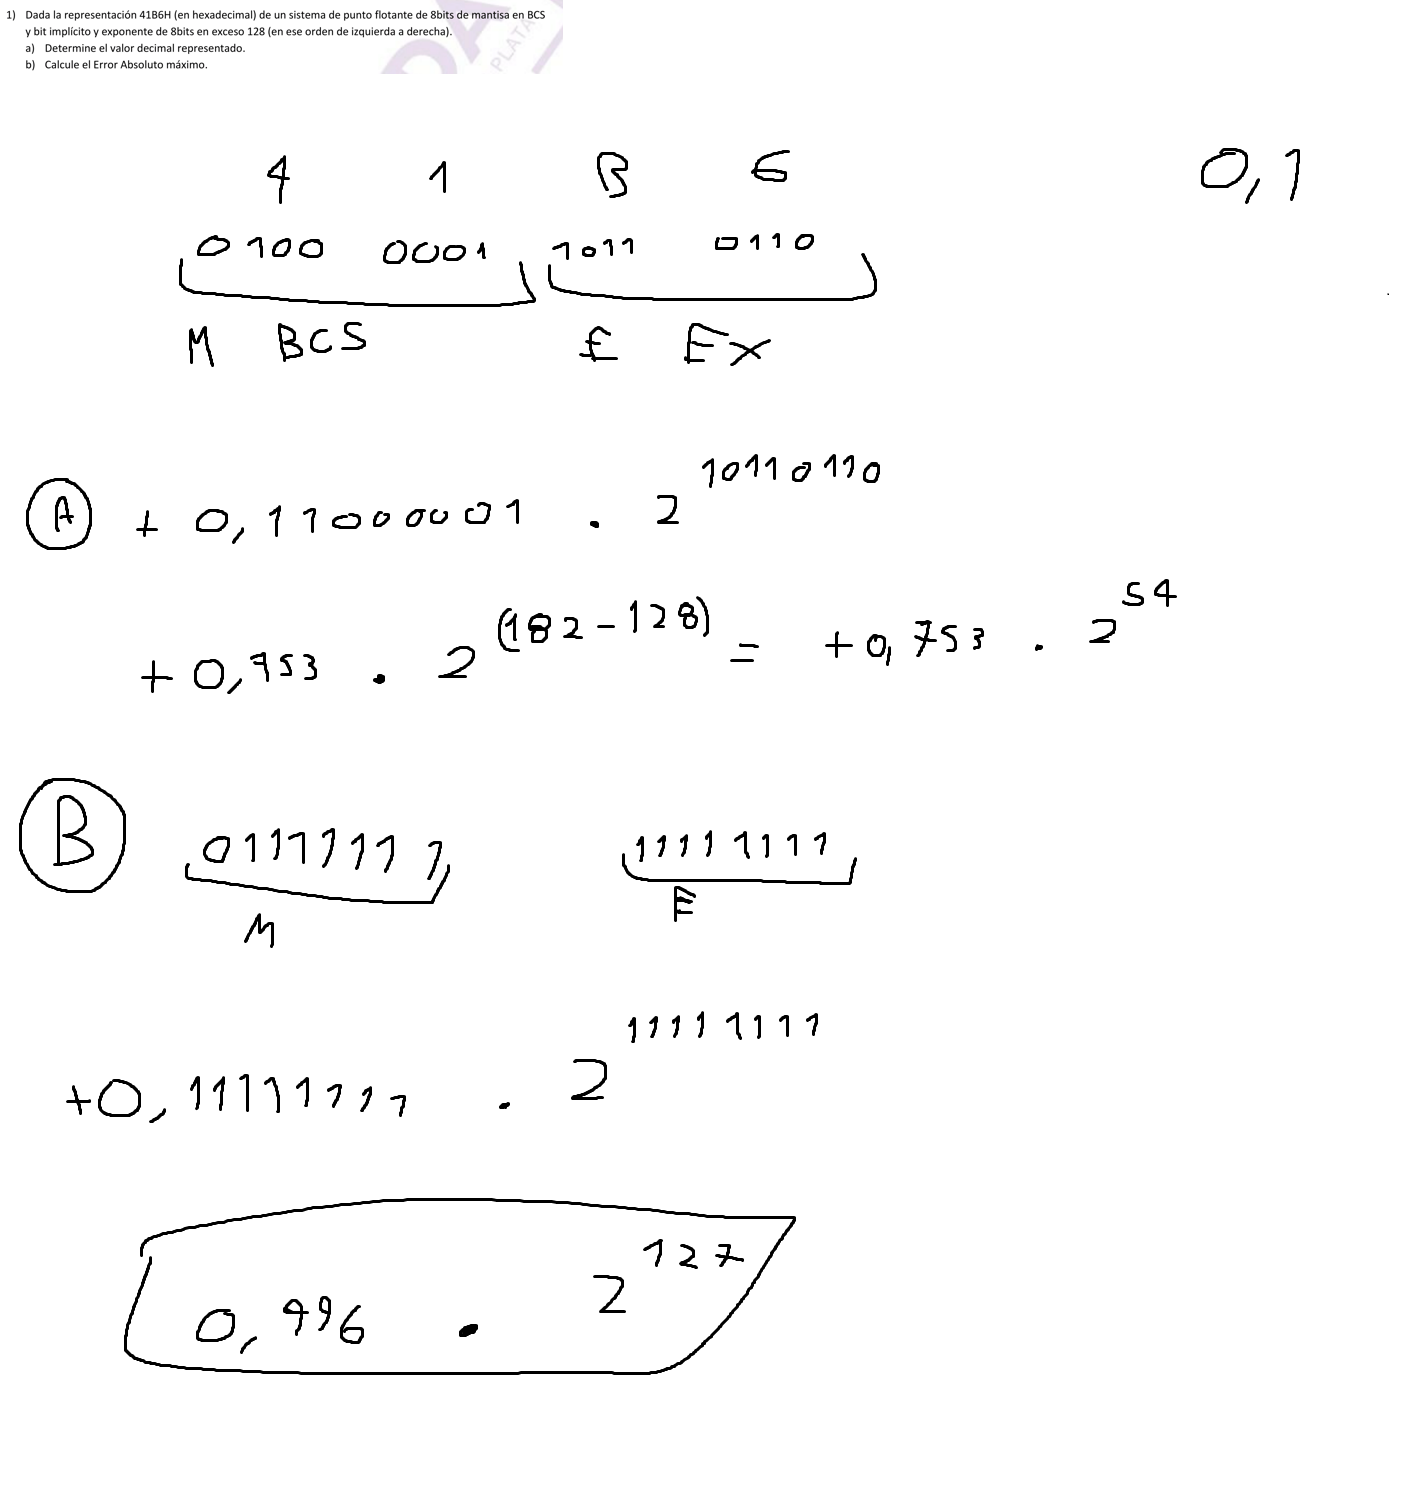 1) Dada la representación 41B6H (en hexadecimal) de un sistema de punto flotante de 8bits de mantisa en BCS
y bit implícito y exponente de 8bits en exceso 128 (en ese orden de izquierda a derecha).
a) Determine el valor decimal representado.
b) Calcule el Error Absoluto máximo.
PLATA
4 1 B 6 0,1
0100 0001 1011 0110
M BCS E Ex
A + 0,11000001 . 2^10110110
+0,753 . 2^(182-128) = +0,753 . 2^54
B 01111111 11111111
M E
+0,11111111 . 2^11111111
0,996 . 2^127